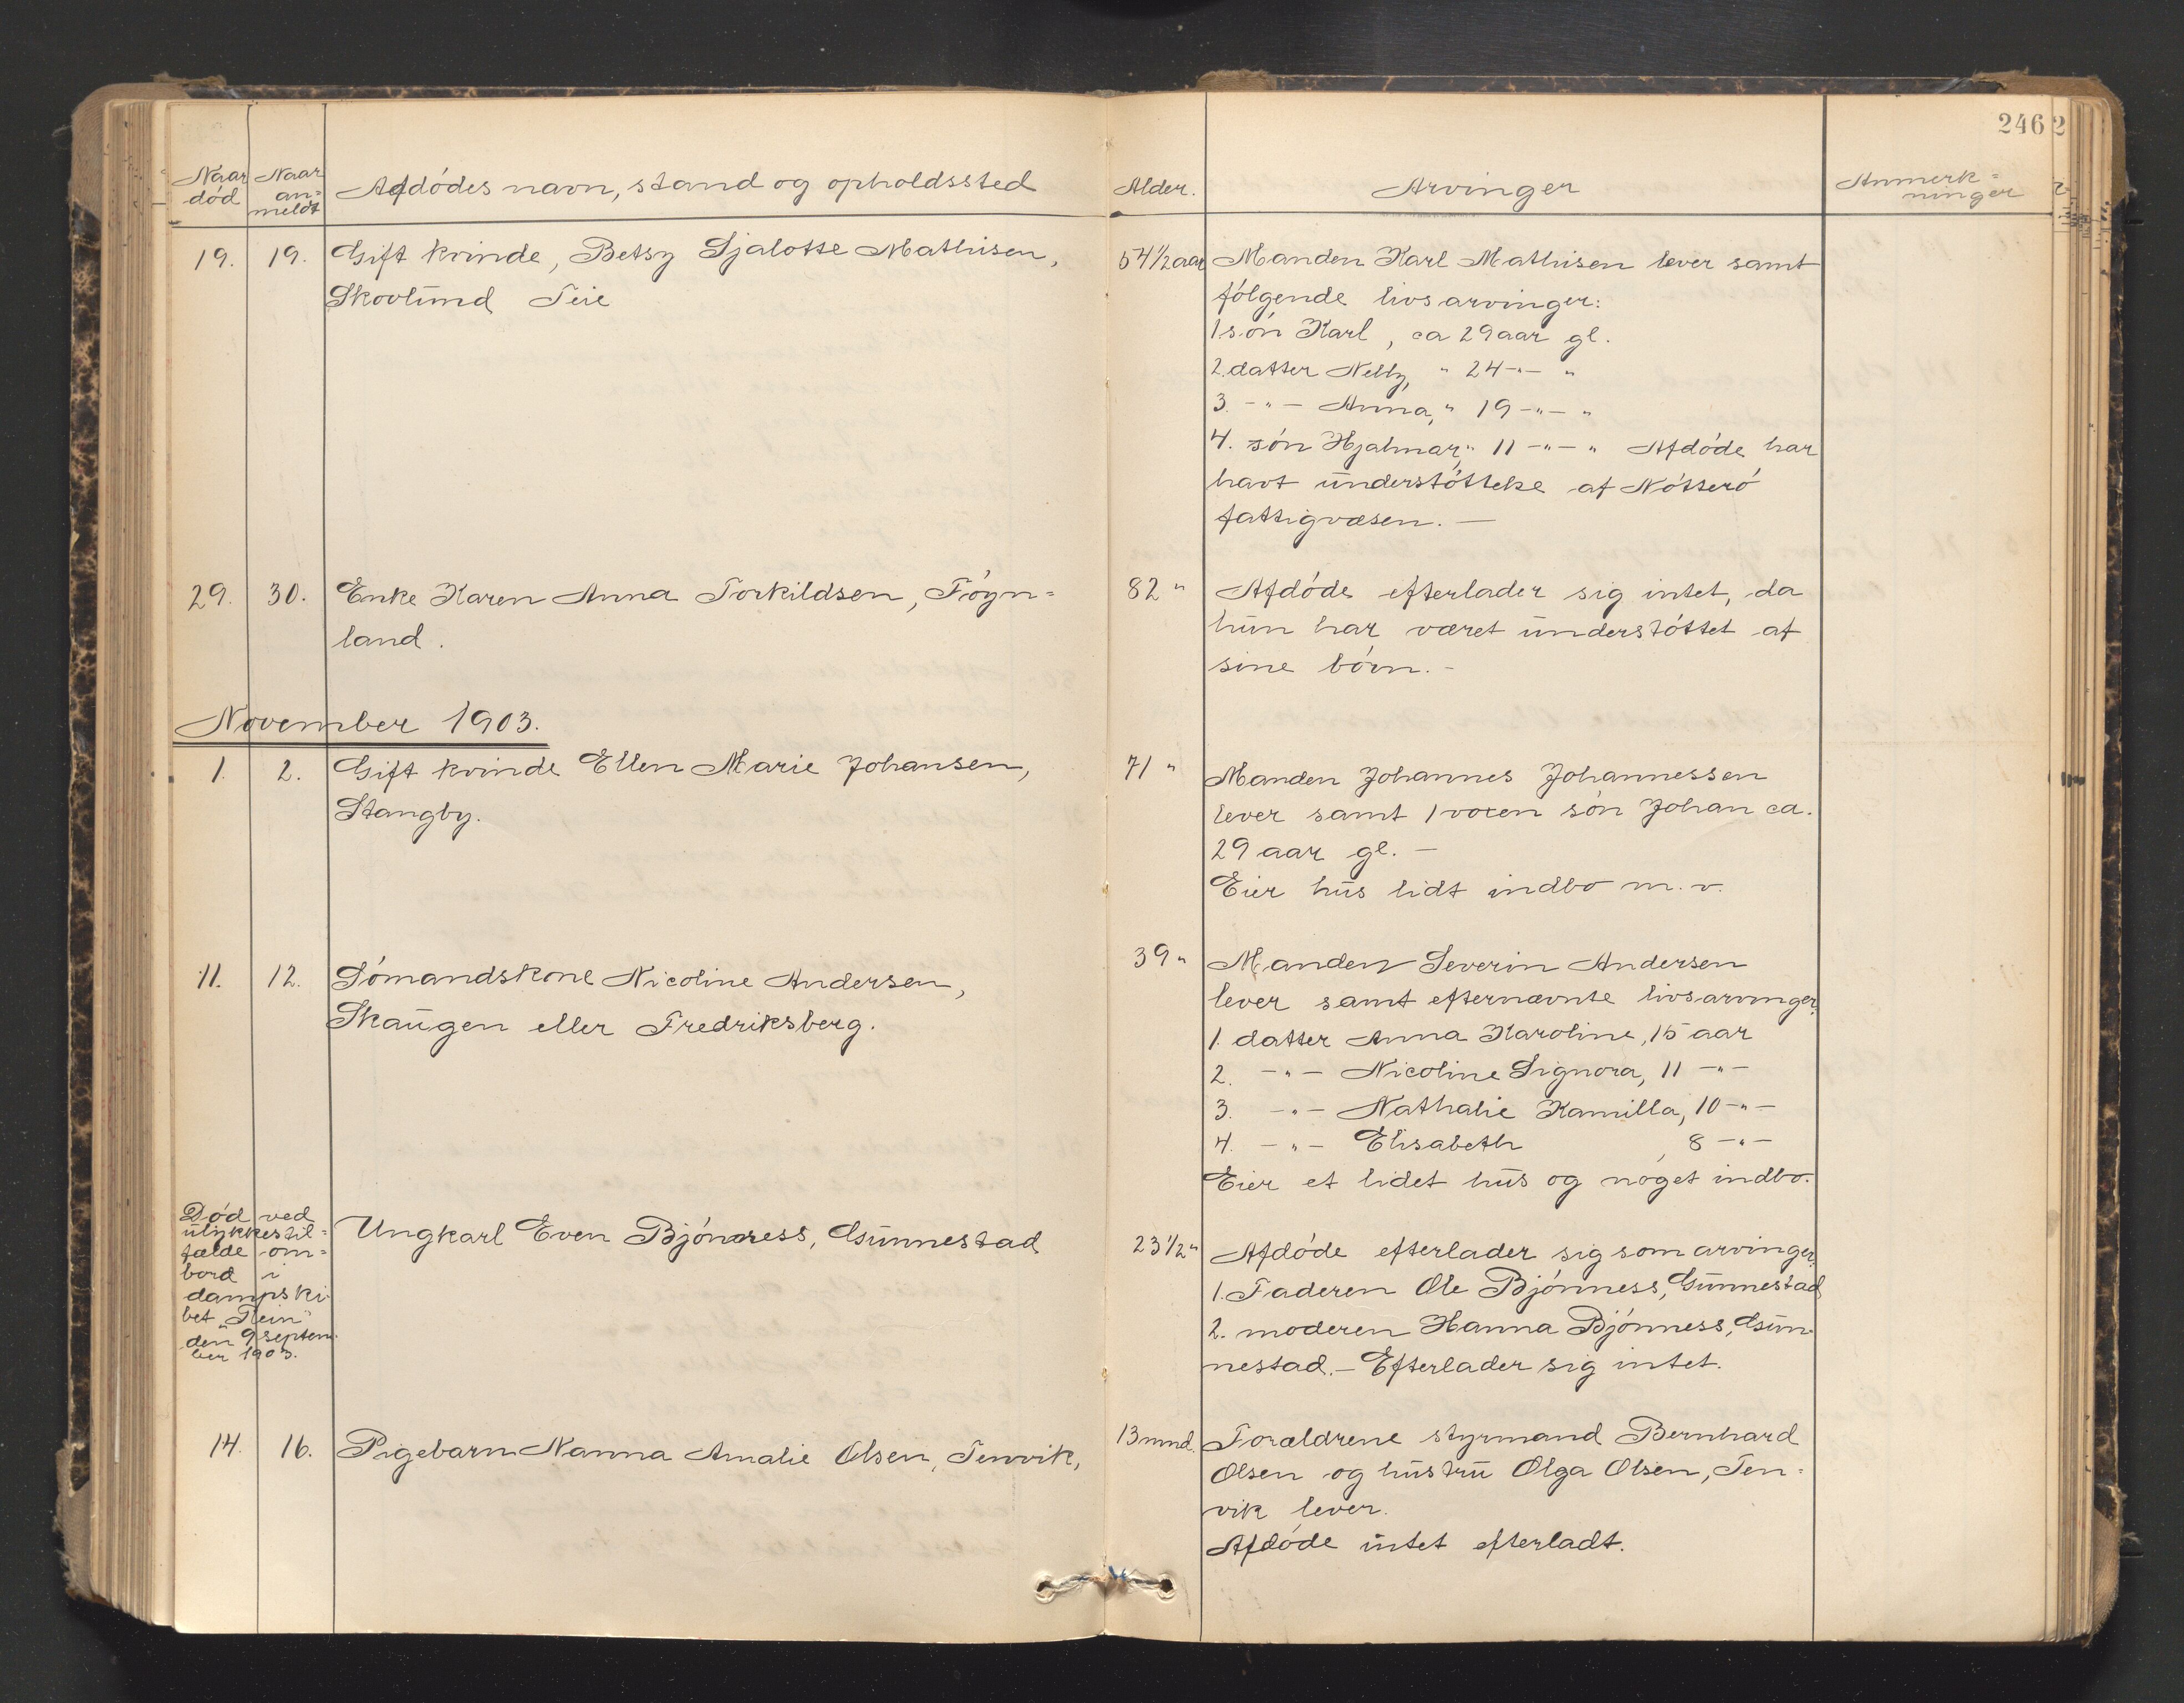 246 2
Naar død
Naar an=meldt
Afdødes navn, stand og opholdssted
Alder.
Arvinger
Anmerk=ninger
19. 19. Gift kvinde, Betsy Sjalotte Mathisen,
Skovlund Teie
54 1/2 aar Manden Karl Mathisen lever samt
følgende livsarvinger:
1 søn Karl, ca 29 aar gl.
2. datter Nelly, " 24 -"- "
3. -"- Anna, " 19 -"- "
4. søn Hjalmar, " 11 -"- " Afdøde har
havt understøttelse af Nøtterø
fattigvæsen. —
29. 30. Enke Karen Anna Torkildsen, Føyn=
land.
82 " Afdøde efterlader sig intet, da
hun har været understøttet af
sine børn. -
November 1903.
1. 2. Gift kvinde Ellen Marie Johansen,
Stangby.
71 " Manden Johannes Johannessen
lever samt 1 voxen søn Johan ca.
29 aar gl. —
Eier hus lidt indbo m. v.
11. 12. Sømandskone Nicoline Andersen,
Skaugen eller Fredriksberg.
39 " Manden Severin Andersen
lever samt efternævnte livsarvinger:
1. datter Anna Karoline, 15 aar
2. -"- Nicoline Signora, 11 -"-
3. -"- Nathalie Kamilla, 10 -"-
4. -"- Elisabeth, 8 -"-
Eier et lidet hus og noget indbo.
Død ved
ulykkestil=
fælde om=
bord i
dampski
bet "Rein"
den 9 septem
ber 1903.
Ungkarl Even Bjønness, Gunnestad
23 1/2 " Afdøde efterlader sig som arvinger:
1. Faderen Ole Bjønness, Gunnestad
2. moderen Hanna Bjønness, Gun
nestad. — Efterlader sig intet.
14. 16. Pigebarn Nanna Amalie Olsen, Tenvik,
13 mnd. Forældrene styrmand Bernhard
Olsen og hustru Olga Olsen, Ten=
vik lever.
Afdøde intet efterladt.